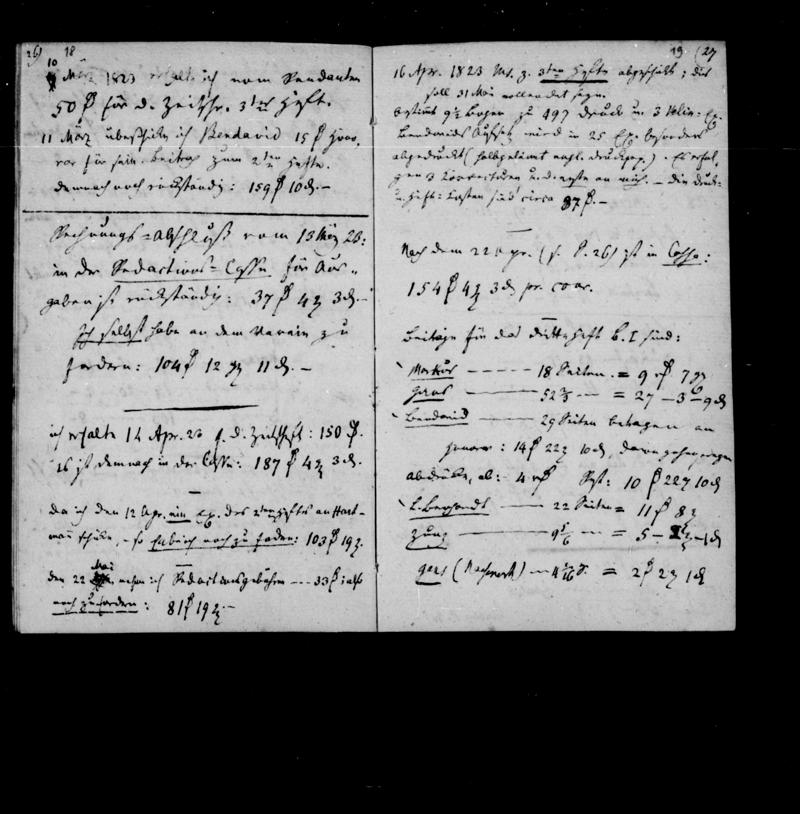 26) 18
10 März 1823 erhalte ich vom Rendanten
50 rf für d. Zeitschr. 3tes Heft.
11 März überschicke ich Bendavid 15 rf Hono-
rar für sein. Beitrag zum 2ten Hefte.
demnach noch rückständig: 159 rf 10 d. –
Rechnungs-Abschluß vom 13 März 23:
in der Redactions-Casse für Aus-
gaben ist rückständig: 37 rf 4 g 3 d. –
Ich selbst habe an dem Verein zu
fordern: 104 rf 12 gr 11 d. –
ich erhalte 14 Apr. 23 f. d. Zeitschrift: 150 rf.
es ist demnach in der Casse: 187 rf 4 g 3 d.
da ich den 12 Apr. ein Ex. des 2ten Hefts an Hart-
mann schicke, so habe ich noch zu fordern: 103 rf 19 g.
den 22 Mai nehm ich Redactionsgebühren – 33 rf; also
noch zu fordern: 81 rf 19 g. –
19 (27
16 Apr. 1823 Ms. z. 3ten Hefte abgeschickt; das
soll 31 Mai vollendet seyn.
bestimmt 9½ Bogen zu 497 Druck u. 3 Velin-Ex.
Bendavids Aufsatz wird in 25 Ex. besonders
abgedruckt (halbgeleimt engl. Druckpap.). Es erfol-
gen 3 Correcturen und erste an mich. – Die Druck-
u. Heft-Kosten sind circa 87 rf. –
Nach dem 22 Apr. (s. S. 26) ist in Casse:
154 rf 4 g 3 d pr. cour.
Beiträge für das dritte Heft B. I sind:
Markus – 18 Seiten. = 9 rf 7 gr
Gans – 52⅔ – = 27 – 3 – 9 d
Bendavid – 29 Seiten betragen an
Honorar: 14 rf 22 g 10 d, davon gehen wegen
abdrücke, ab: 4 rf Rest: 10 rf 22 g 10 d
L. Bernhardt – 22 Seiten = 11 rf 8 g
Zunz – 9 5/6 – = 5 – 2 g – 1 d
Gans (Nachwort) – 4 1/16 S. = 2 rf 2 g 1 d